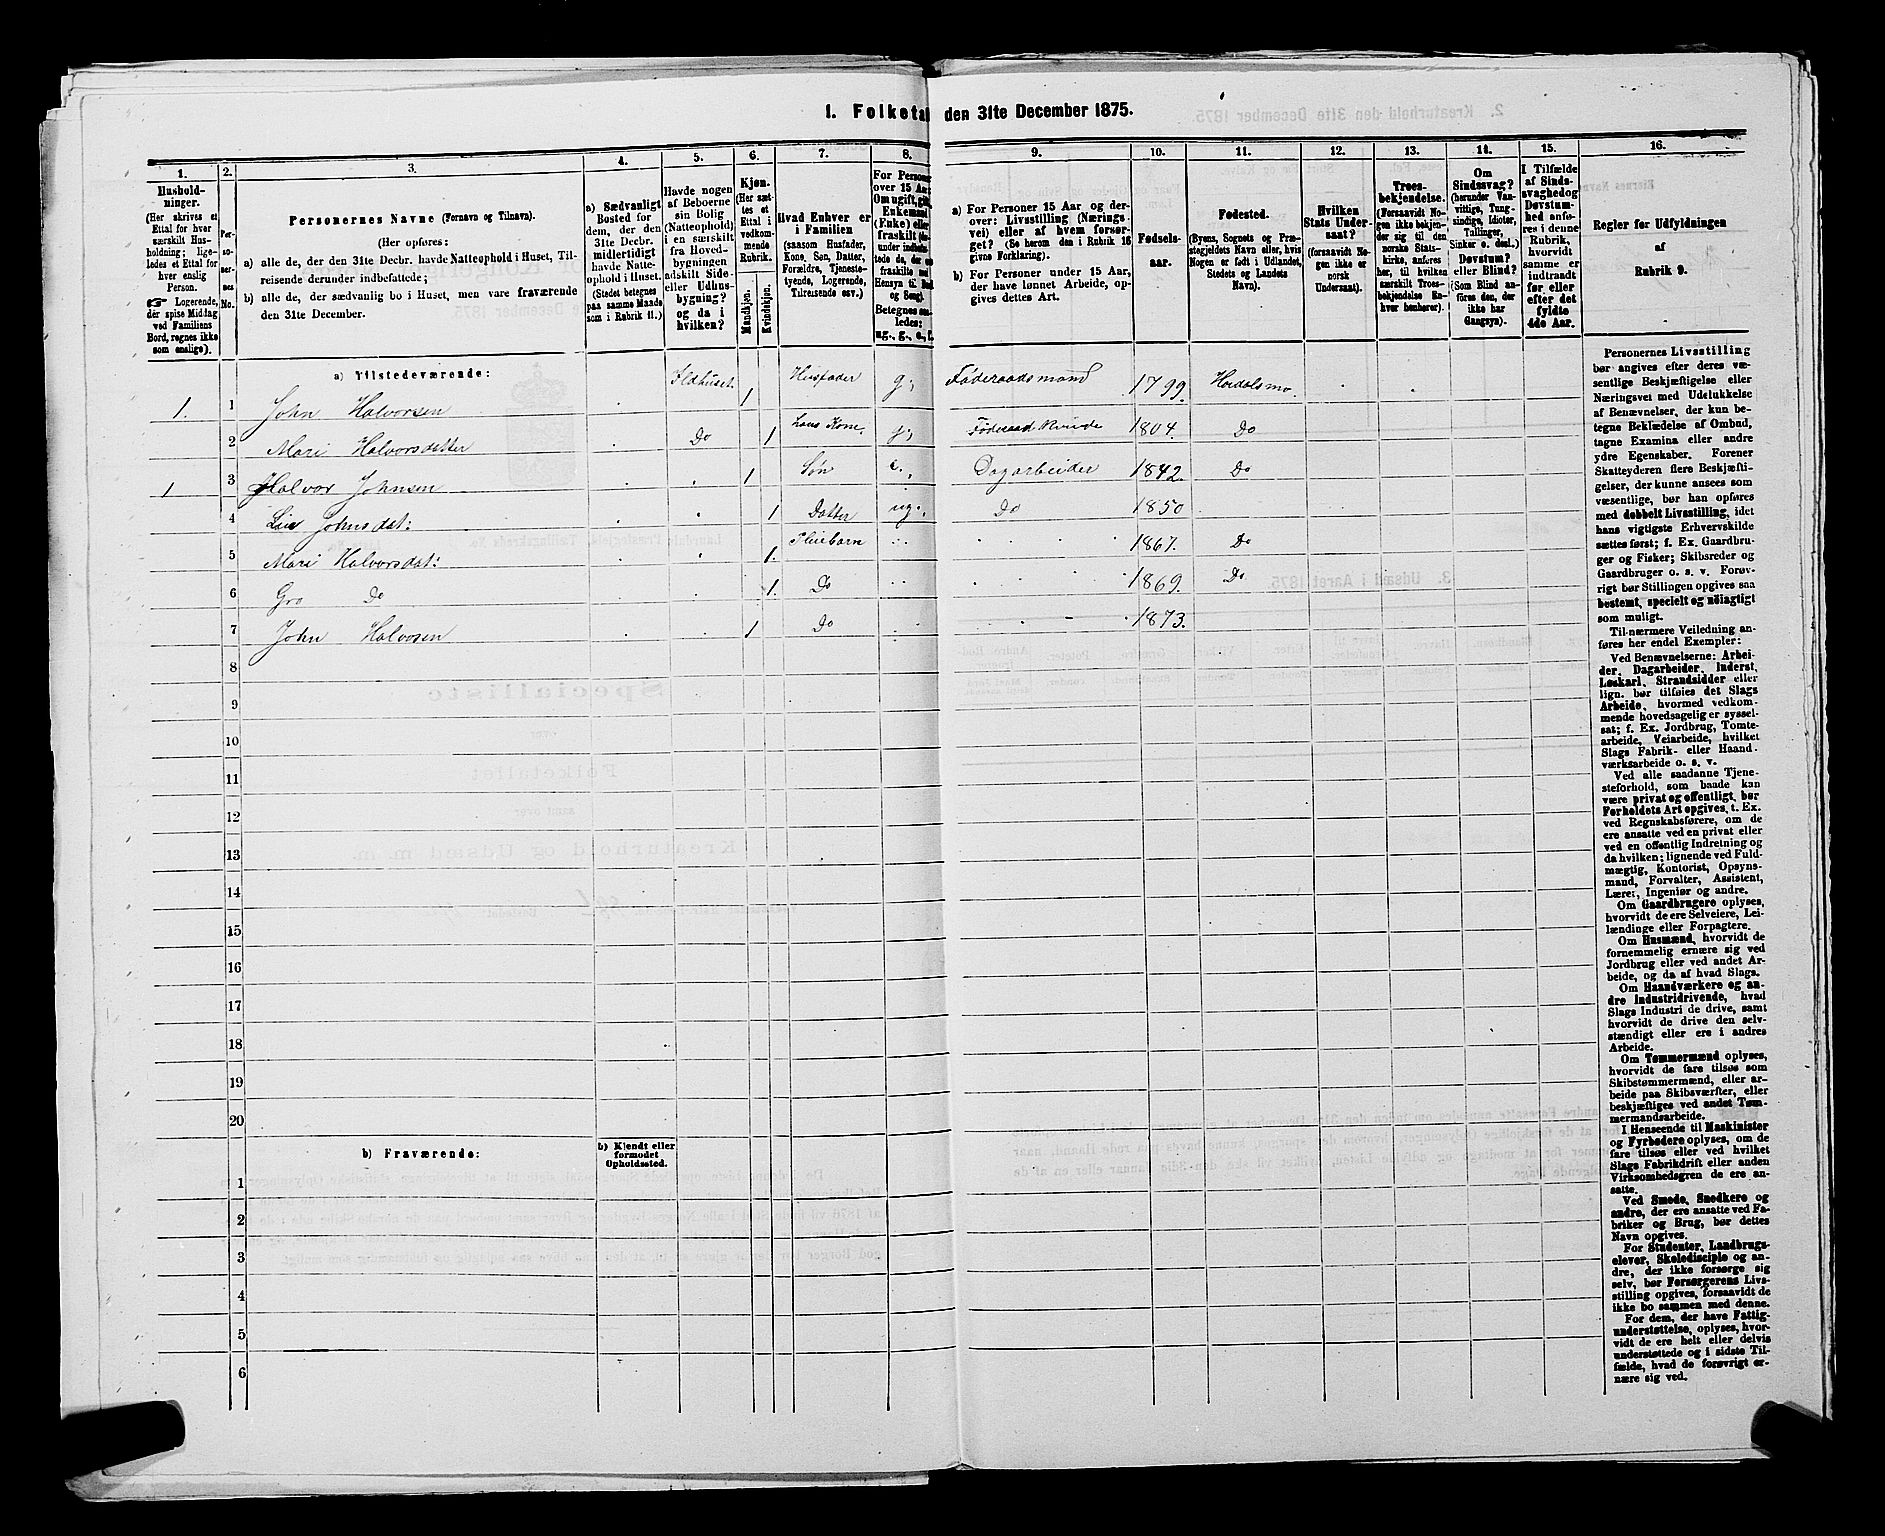 1. Folketal den 31te December 1875.
1.
Hushold-
ninger.
(Her skrives et
Ettal for hver
særskilt Hus-
holdning; lige-
ledes et Ettal for
hver enslig
Person.
☞ Logerende,
der spise Middag
ved Familiens
Bord, regnes ikke
som enslige).
2.
Per-
so-
ner-
nes
No.
3.
Personernes Navne (Fornavn og Tilnavn).
(Her opføres:
a) alle de, der den 31te Decbr. havde Natteophold i Huset, Til-
reisende derunder indbefattede;
b) alle de, der sædvanlig bo i Huset, men vare fraværende
den 31te December.
4.
a) Sædvanligt
Bosted for
dem, der den
31te Decbr.
midlertidigt
havde Natte-
ophold i Huset.
(Stedet betegnes
paa samme Maade
som i Rubrik 11.)
5.
Havde nogen
af Beboerne
sin Bolig
(Natteophold)
i en særskilt
fra Hoved-
bygningen
adskilt Side-
eller Udhus-
bygning?
og da i
hvilken?
6.
Kjøn.
(Her sæt-
tes et
Ettal i
vedkom-
mende
Rubrik.
Mandkjøn.
Kvindekjøn.
7.
Hvad Enhver er
i Familien
(saasom Husfader,
Kone, Søn, Datter,
Forældre, Tjeneste-
tyende, Logerende,
Tilreisende osv.)
8.
For Personer
over 15 Aar:
Om ugift, gift,
Enkemand
(Enke) eller
fraskilt
Betegnes saa-
ledes:
ug., g., e., f.
9.
a) For Personer 15 Aar og der-
over: Livsstilling (Nærings-
vei) eller af hvem forsør-
get? (Se herom den i Rubrik 16
givne Forklaring).
b) For Personer under 15 Aar,
der have lønnet Arbeide, op-
gives dettes Art.
10.
Fødsels-
aar.
11.
Fødested.
(Byens, Sognets og Præ-
stegjeldets Navn eller, hvis
Nogen er født i Udlandet,
Stedets og Landets
Navn).
12.
Hvilken
Stats Under-
saat?
(forsaavidt No-
gen ikke er
norsk
Undersaat).
13.
Troes-
bekjendelse.
(Forsaavidt No-
gen ikke bekjen-
der sig til den
norske Stats-
kirke, anføres
her, til hvilken
særskilt Troes-
bekjendelse En-
hver henhører).
14.
Om
Sindssvag?
(herunder Van-
vittige, Tung-
sindige, Idioter,
Tullinger,
Sinker o. desl.)
Døvstum?
eller Blind?
(Som Blind an-
føres den, der
ikke har
Gangsyn).
15.
I Tilfælde
af Sinds-
svaghed og
Døvstum-
hed anfø-
res i denne
Rubrik,
hvorvidt
samme er
indtraadt
før eller
efter det
fyldte
4de Aar.
16.
Regler for Udfyldningen
af
Rubrik 9.
a) Tilstedeværende:
1. 1 John Halvorsen Ildhuset. 1 Husfader g; Føderaadsmand 1799. Hoidalsmo.
2 Mari Halvorsdatter Do 1 hans Kone. g; Føderaad Kvinde 1804. Do
1 3 Halvor Johnsen 1 Søn e., Dagarbeider 1842. Do
4 Johnsdat: 1 Datter ug., Do 1850
5 Mari Halvorsdat: 1. Pleiebarn 1867. Do
6 Gro Do 1. Do 1869. Do
7 John Halvosen 1 Do 1873.
8
9
10
11
12
13
14
15
16
17
18
19
20
b) Fraværende:
b) Kjendt eller
formodet
Opholdssted.
1
2
3
4
5
6
Personernes Livsstilling
bør angives efter deres væ-
sentlige Beskjæftigelse eller
Næringsvei med Udelukkelse
af Benævnelser, der kun be-
tegne Beklædelse af Ombud,
tagne Examina eller andre
ydre Egenskaber. Forener
Skatteyderen flere Beskjæfti-
gelser, der kunne ansees som
væsentlige, bør han opføres
med dobbelt Livsstilling, idet
hans vigtigste Erhvervskilde
sættes først; f. Ex. Gaardbru-
ger og Fisker; Skibsreder og
Gaardbruger o. s. v. Forøv-
rigt bør Stillingen opgives saa
bestemt, specielt og nøiagtigt
som muligt.
Til nærmere Veiledning an-
føres her endel Exempler:
Ved Benævnelserne: Arbei-
der, Dagarbeider, Inderst,
Løskarl, Strandsidder eller
lign. bør tilføies det Slags
Arbeide, hvormed vedkom-
mende hovedsagelig er syssel-
sat; f. Ex. Jordbrug, Tomte-
arbeide, Veiarbeide, hvilket
Slags Fabrik- eller Haand-
værksarbeide o. s. v.
Ved alle saadanne Tjene-
steforhold, som baade kan
være privat og offentligt, bør
Forholdets Art opgives, t. Ex.
ved Regnskabsførere, om de
ere ansatte ved en privat eller
ved en offentlig Indretning og
da hvilken; lignende ved Fuld-
mægtig, Kontorist, Opsyns-
mand, Forvalter, Assistent,
Lærer, Ingeniør og andre.
Om Gaardbrugere oplyses,
hvorvidt de ere Selveiere, Lei-
lændinge eller Forpagtere.
Om Husmænd, hvorvidt de
fornemmelig ernære sig ved
Jordbrug eller ved andet Ar-
beide, og da af hvad Slags.
Om Haandværkere og an-
dre Industridrivende, hvad
Slags Industri de drive, samt
hvorvidt de drive den selv-
stændigt eller ere i andres
Arbeide.
Om Tømmermænd oplyses,
hvorvidt de fare tilsøs som
Skibstømmermænd, eller ar-
beide paa Skibsværfter, eller
beskjæftiges ved andet Tøm-
mermandsarbeide.
I Henseende til Maskinister
og Fyrbødere oplyses, om de
fare tilsøs eller ved hvilket
Slags Fabrikdrift eller anden
Virksomhedsgren de ere an-
satte.
Ved Smede, Snedkere og
andre, der ere ansatte ved Fa-
briker og Brug, bør dettes
Navn opgives.
For Studenter, Landbrugs-
elever, Skoledisciple og an-
dre, der ikke forsørge sig
selv, bør Forsørgerens Livs-
stilling opgives, forsaavidt de
ikke bo sammen med denne.
For dem, der have Fattig-
understøttelse, oplyses, hvor-
vidt de ere helt eller delvis
understøttede og i sidste Til-
fælde, hvad de forøvrigt er-
nære sig ved.